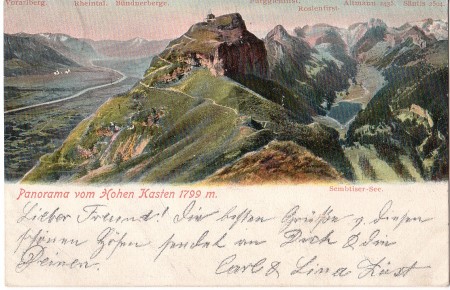 Vorarlberg. Rheintal. Bündnerberge. Furgglenfirst. Roslenfirst. Altmann Säntis 2504.
Panorama vom Hohen Kasten 1799 m.
Sembtiser-See.
Lieber Freund! Die besten Grüße v. diesen
schönen Höhen sendet an Dich & die
Deinen.
Carl & Lina Lüst